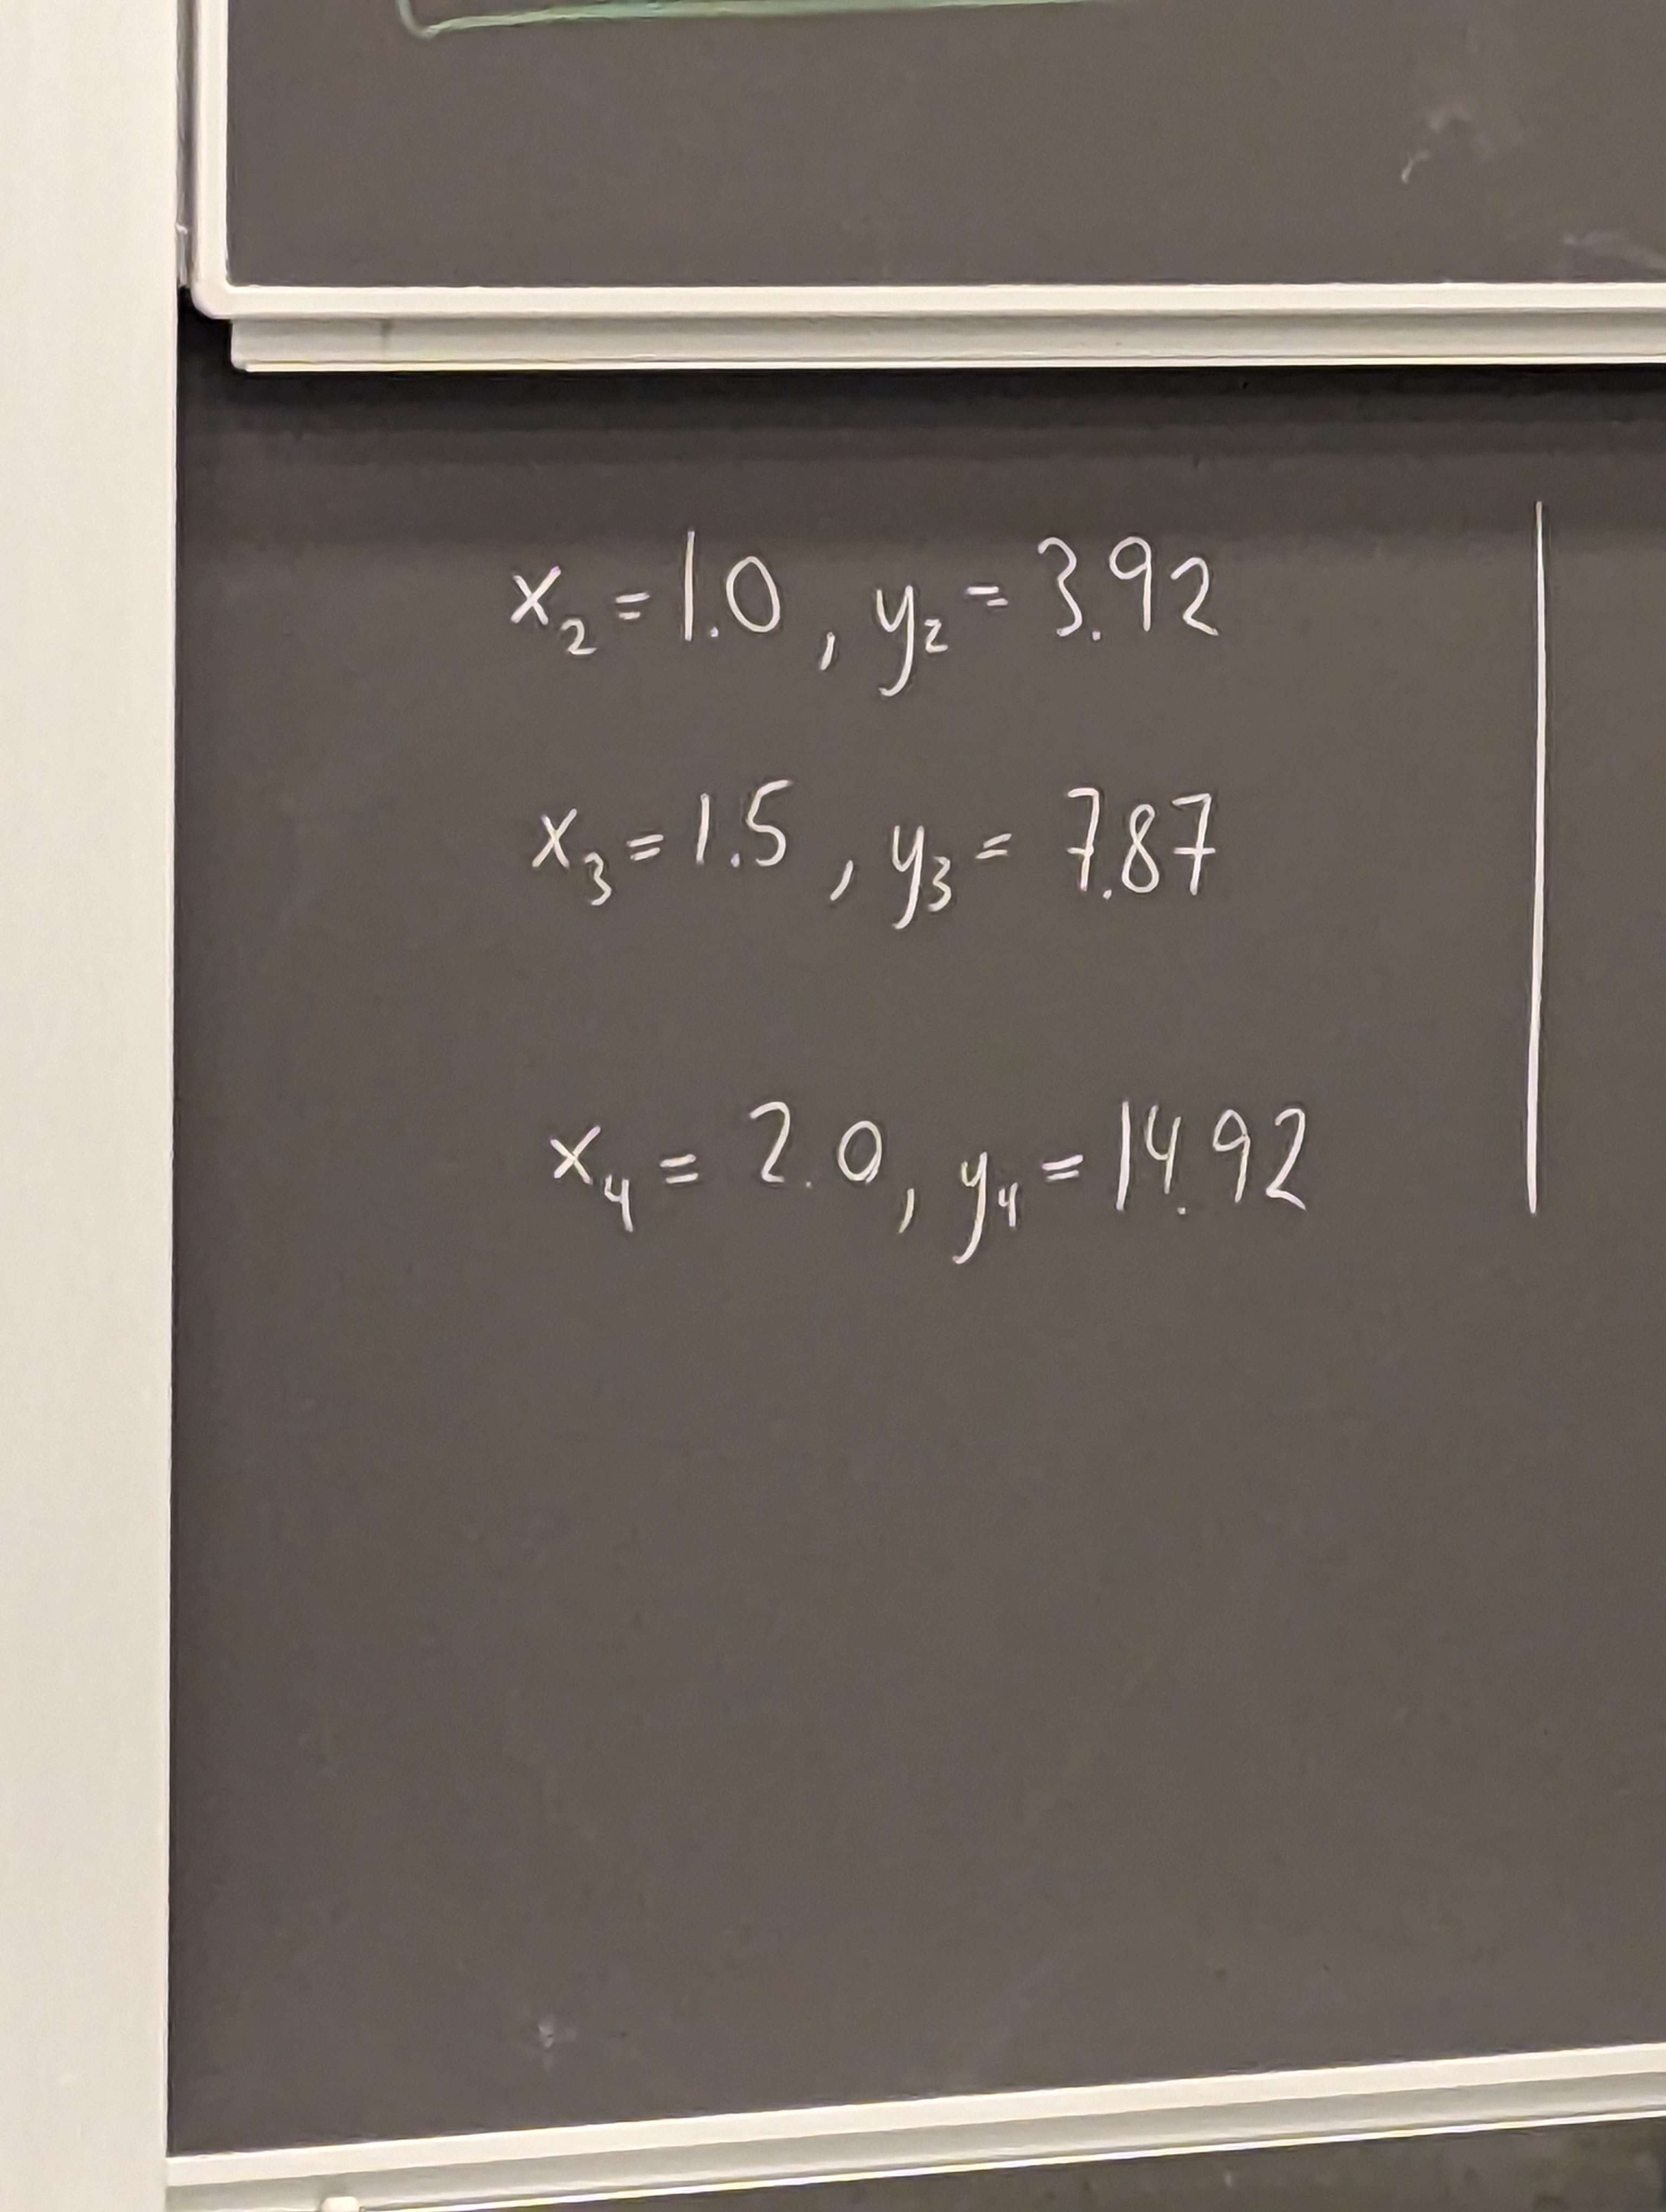 x₂ = 1.0 , y₂ = 3.92
x₃ = 1.5 , y₃ = 7.87
x₄ = 2.0 , y₄ = 14.92